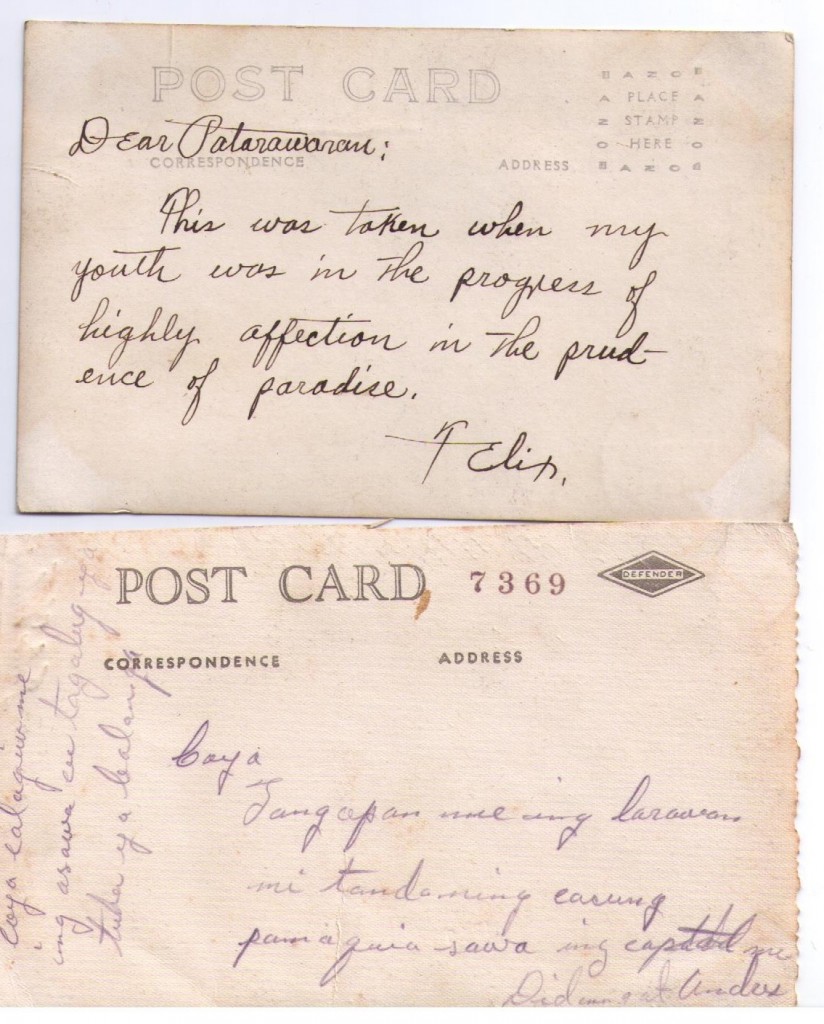 POST CARD
AZO
PLACE
STAMP
HERE
AZO
Dear Patarawaran:
CORRESPONDENCE ADDRESS
This was taken when my
youth was in the progress of
highly affection in the prud-
ence of paradise.
Felix.
POST CARD 7369 DEFENDER
CORRESPONDENCE ADDRESS
Coya
Tangapan me ing larawan
mi tandaning casung
pamaguia sawa ing me
coya calaguiume
ing asawa cu tagalug ya
tuba ya balanga